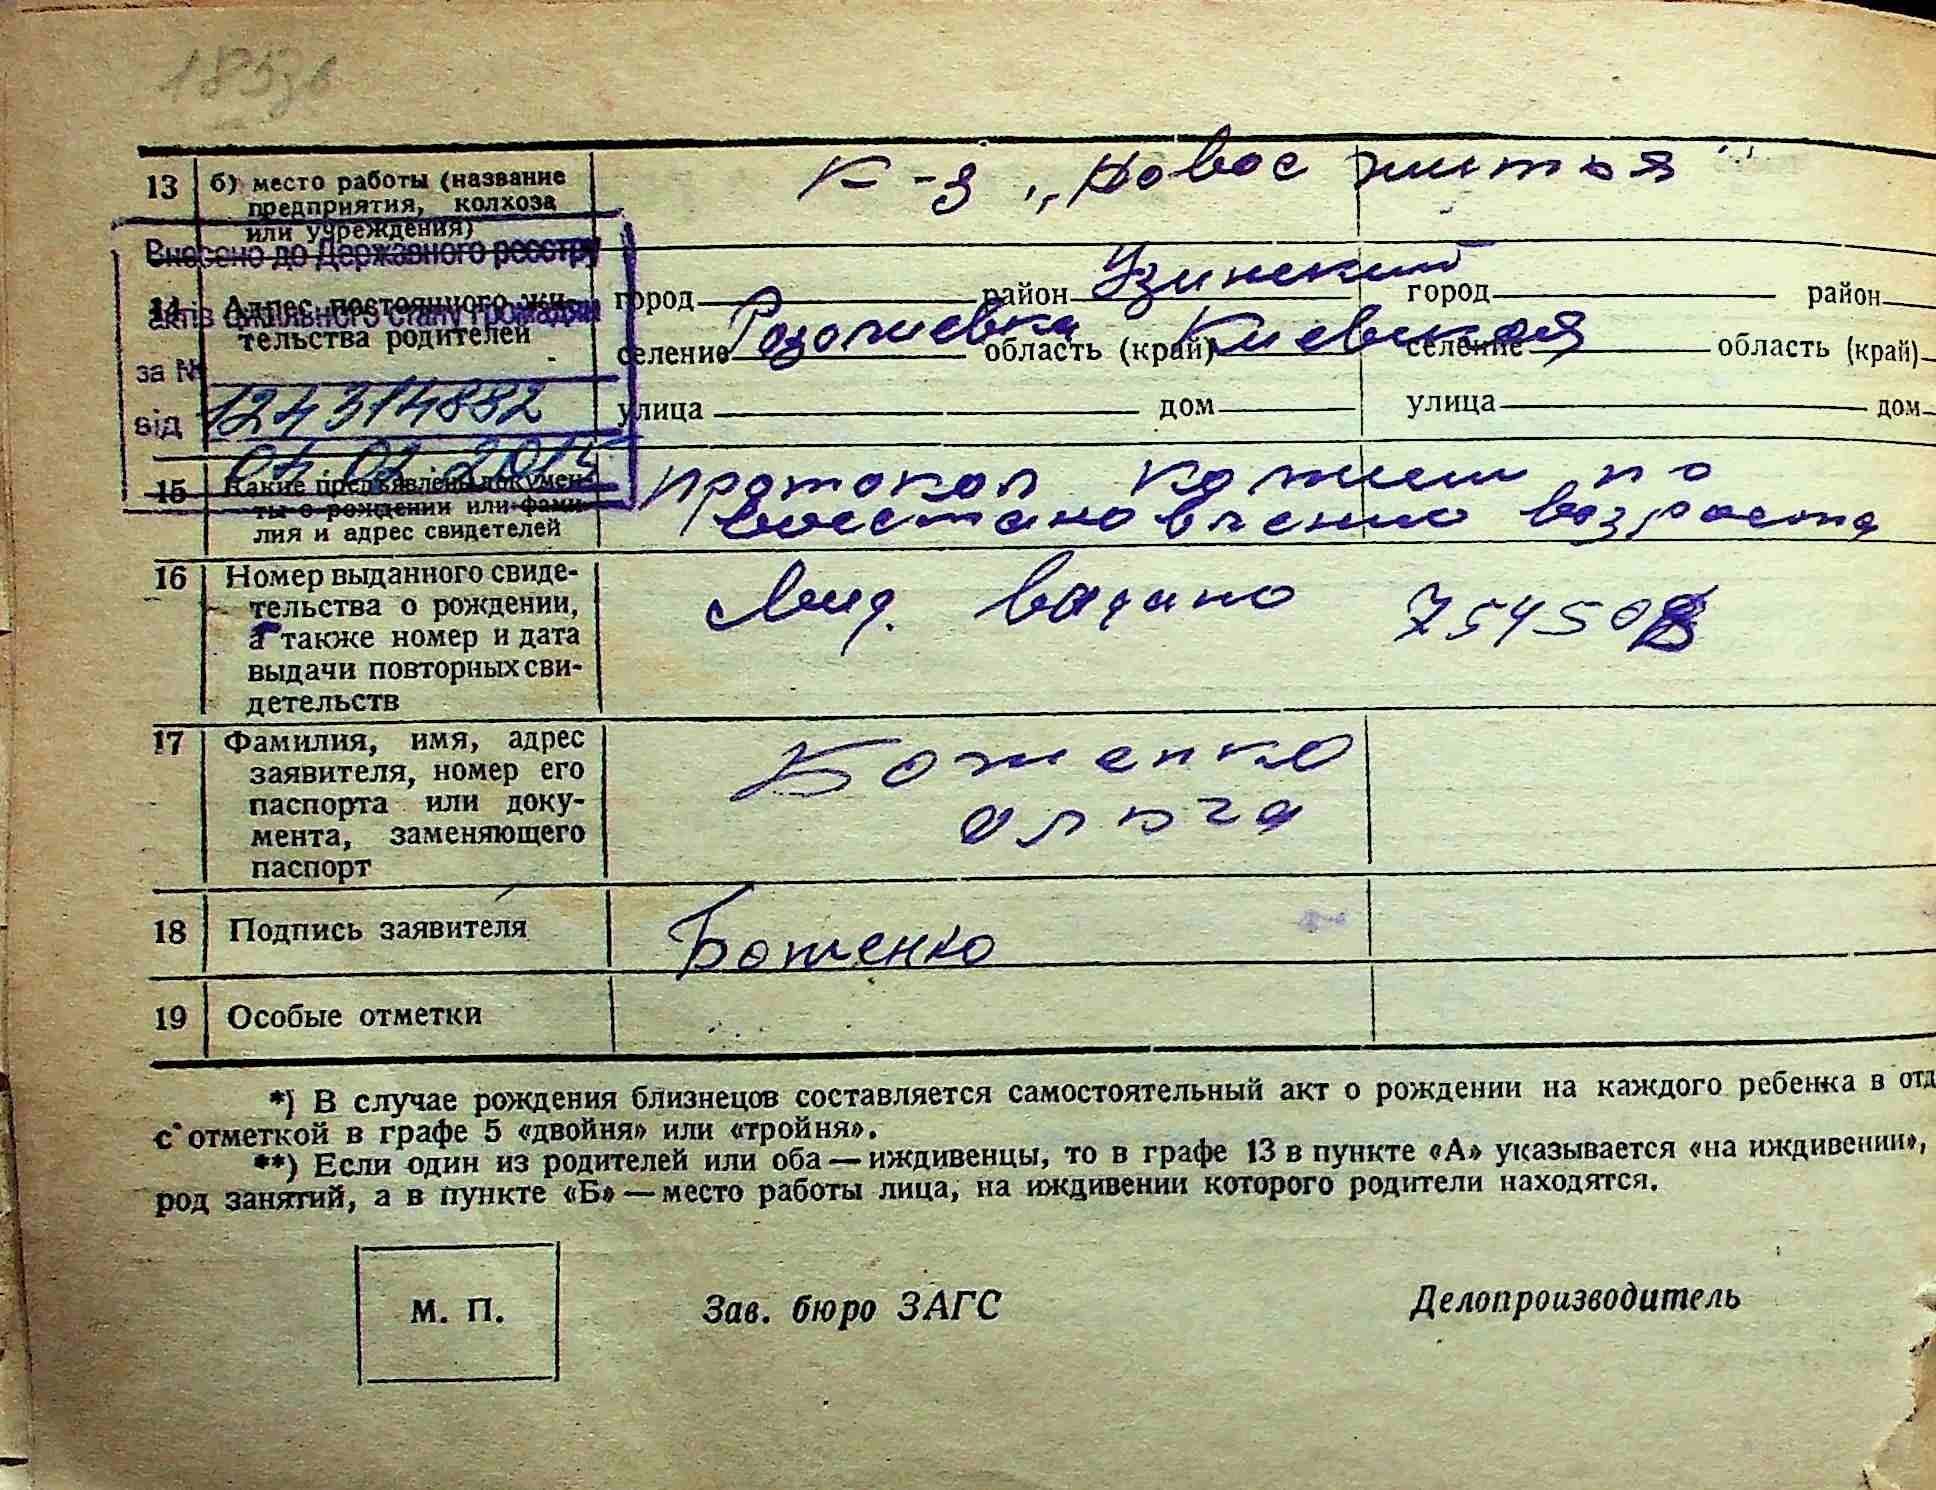 13 б) место работы (название
предприятия, колхоза
или учреждения)
К-з „Новое життя"
Внесено до Державного реєстру
актів цивільного стану громадян
за №
124314882
від
14 Адрес постоянного жи-
тельства родителей
город район Узинский город район
селение область (край) Киевская селение область (край)
улица дом улица дом
15 Какие предъявлены докумен-
ты о рождении или фами-
лия и адрес свидетелей
протокол комисии по
восстановлению возраста
16 Номер выданного свиде-
тельства о рождении,
а также номер и дата
выдачи повторных сви-
детельств
видано
17 Фамилия, имя, адрес
заявителя, номер его
паспорта или доку-
мента, заменяющего
паспорт
Боженко
Ольга
18 Подпись заявителя
Боженко
19 Особые отметки
*) В случае рождения близнецов составляется самостоятельный акт о рождении на каждого ребенка в отд
с отметкой в графе 5 «двойня» или «тройня».
**) Если один из родителей или оба — иждивенцы, то в графе 13 в пункте «А» указывается «на иждивении»,
род занятий, а в пункте «Б» — место работы лица, на иждивении которого родители находятся.
М. П.
Зав. бюро ЗАГС
Делопроизводитель